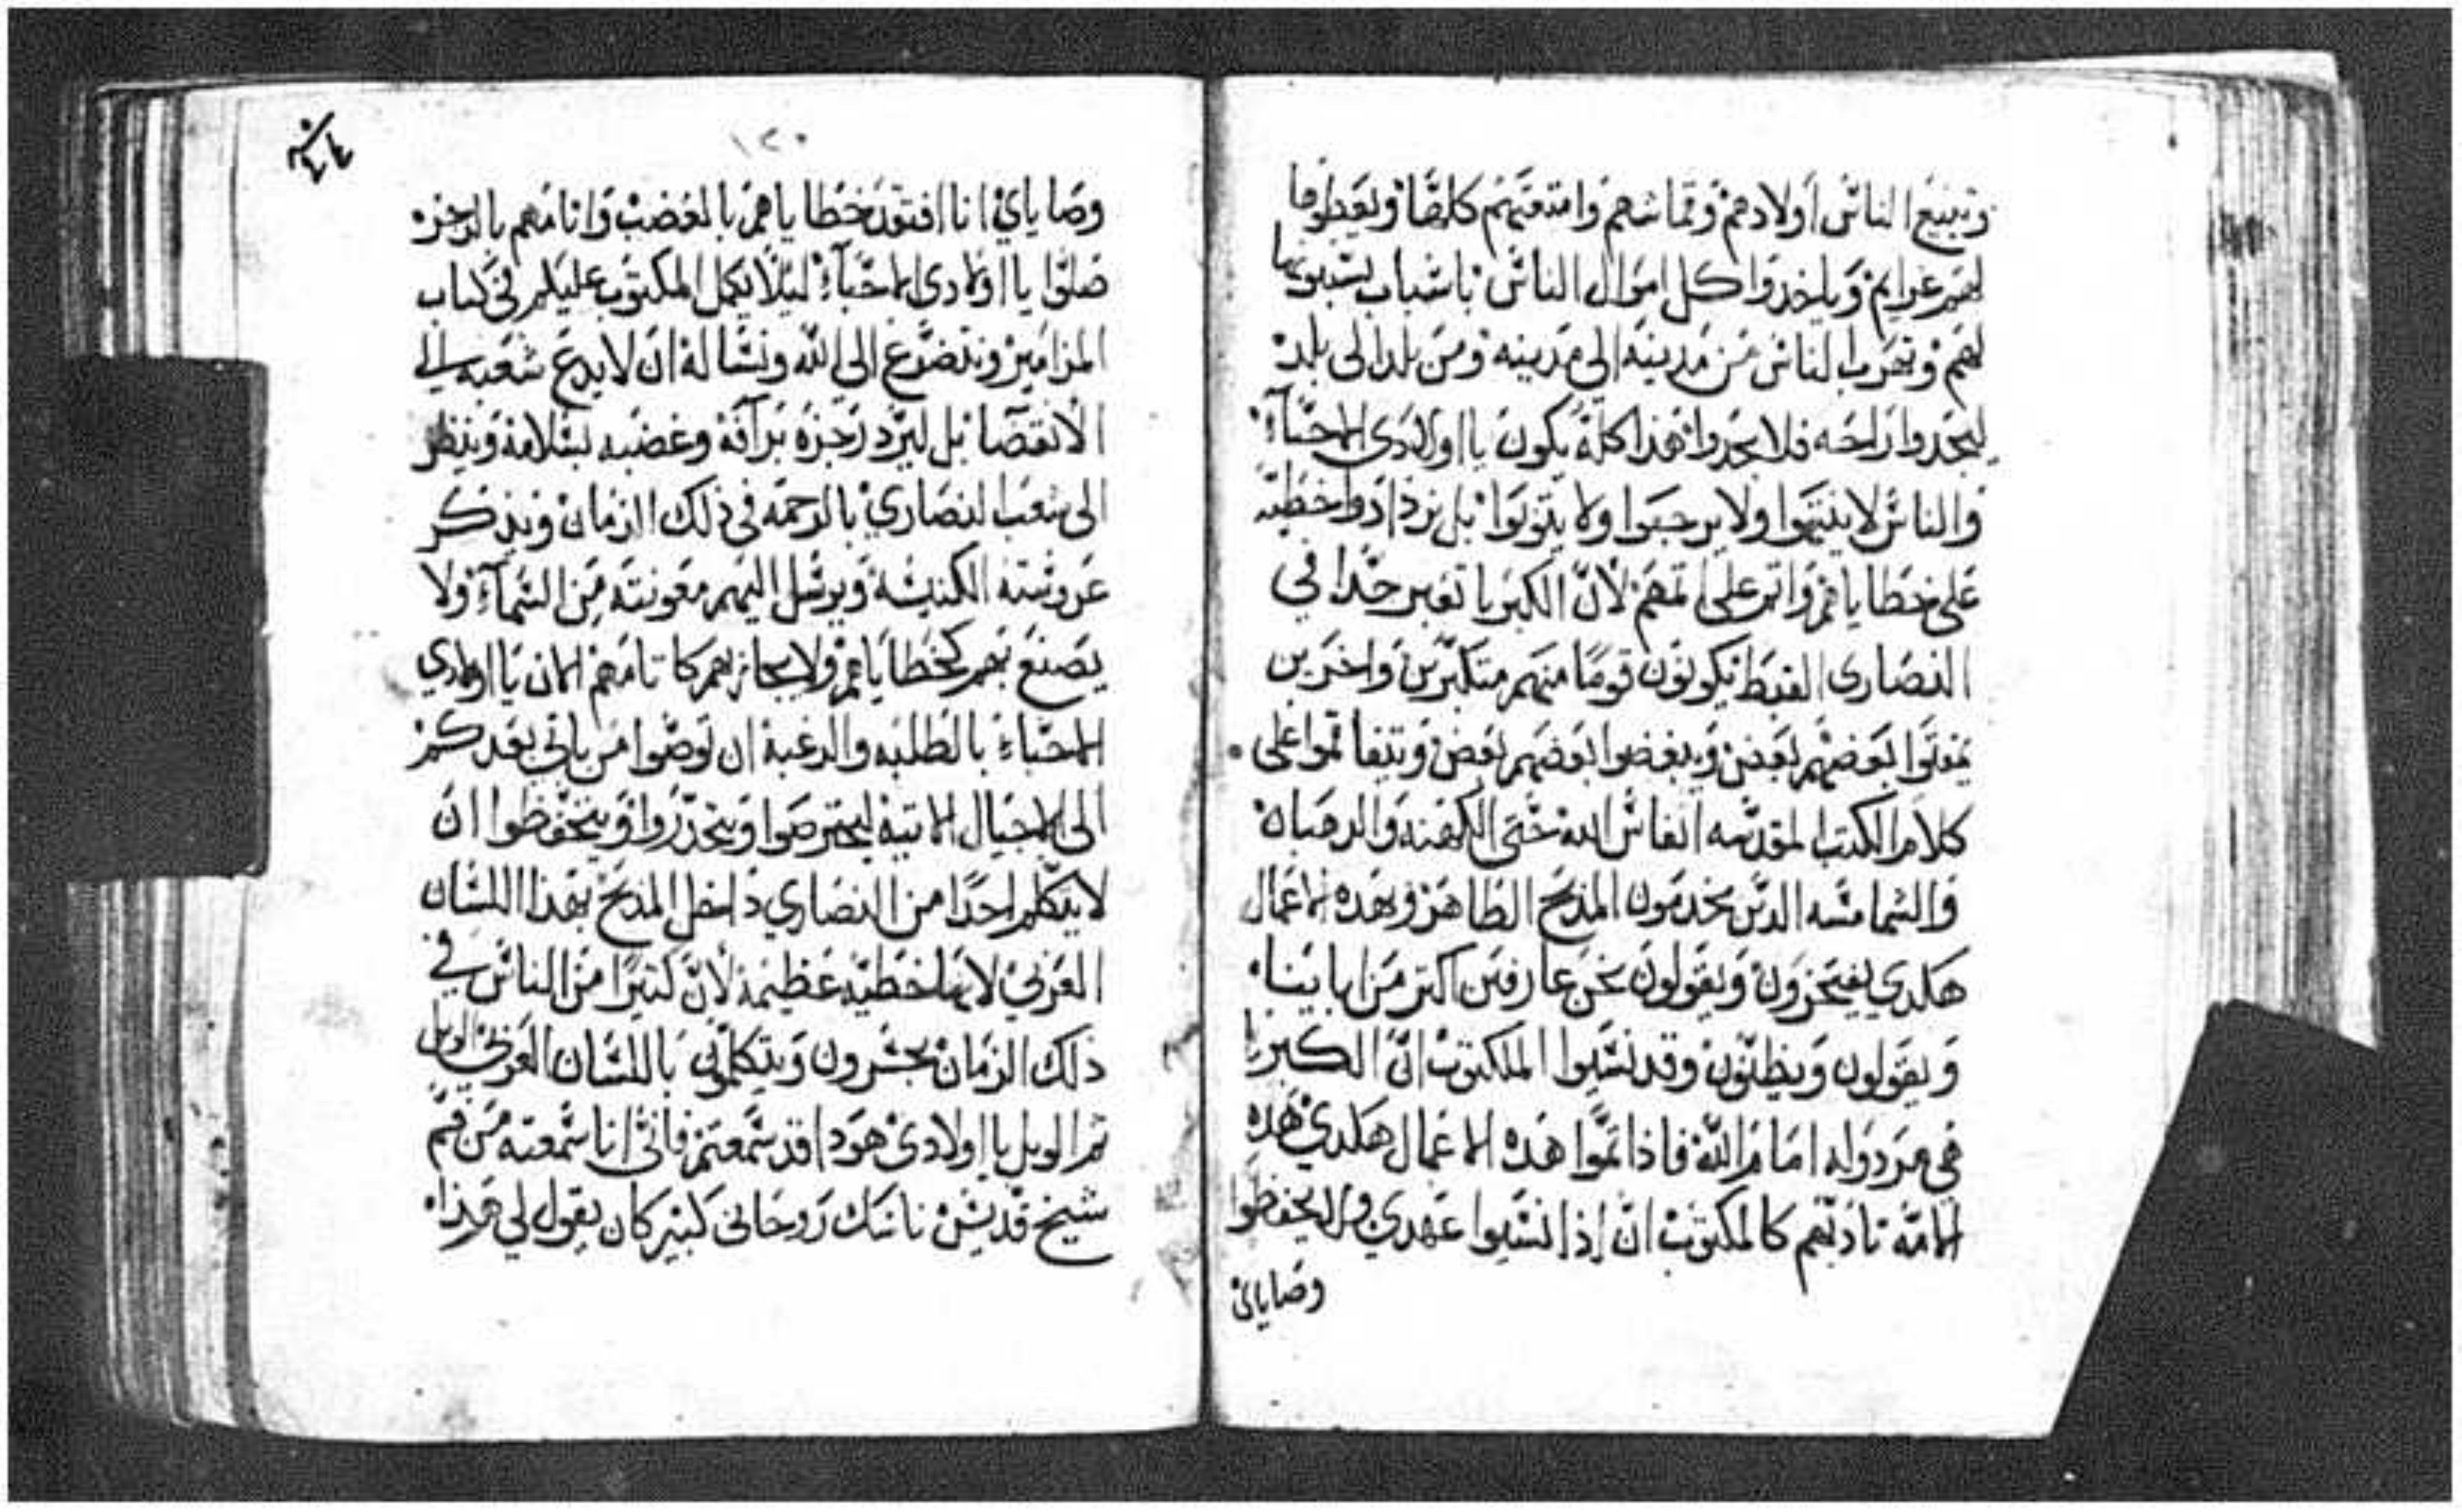 وتبيع الناس اولادهم وقماشهم وامتعتهم كلها ويعطوها
لهم غرايم وياخدوا كل اموال الناس باسباب يسببونها
لهم وتهرب الناس من مدينه الي مدينه ومن بلد الى بلد
ليجدوا راحه فلا يجدوا هذا كله يكون يا اولادى الاحباء
والناس لا ينتهوا ولا يرجعوا ولا يتوبوا بل يزدادوا خطيه
على خطاياهم واتم على اتمهم لان الكبريا تعبر جدا في
النصارى القبط يكونون قوما منهم متكبرين واخرين
يمقتوا بعضهم بعض ويبغضوا بعضهم بعض ويتفاقموا على
كلام الكتب المقدسه انفاس الله حتى الكهنه والرهبان
والشمامسه الدين يخدمون المدبح الطاهر وبهده الاعمال
هكدي يفتخرون ويقولون نحن عارفين اكتر من ابايينا
ويقولون ويظنون وقد نسيوا المكتوب ان الكبريا
هى مردوله امام الله فاذا تموا هده الاعمال هكدي هده
الامه نادبهم كالمكتوب ان إذا نسيوا عهدي ولم يحفظوا
وصاياى
١٢٠
وصاياي انا افتقد خطاياهم بالغضب واتامهم بالرجز
صلوا يا اولادى الاحباء ليلا يكمل المكتوب عليكم في كتاب
المزامير ونتضرع الي الله ونساله ان لا يدع شعبه الي
الانقضا بل ليرد رجزه برافه وغضبه بسلامه وينظر
الى شعب النصاري بالرحمه في ذلك الزمان ويذكر
عروسته الكنيسة ويرسل اليهم معونته من السماء ولا
يصنع بهم كخطاياهم ولا يجازيهم كاتامهم الان يا اولادي
الاحباء بالطلبه والرغبة ان توصوا من ياتي بعدكم
الى الاجيال الاتيه ليحترصوا ويتحدروا ويتحفظوا ان
لا يتكلم احدا من النصاري داخل المدبح بهذا اللسان
العربي لانها خطيه عظيمه لان كتيرا من الناس في
ذلك الزمان يجسرون ويتكلموا باللسان العربي الويل
تم الويل يا اولادي هودا قد سمعتم فاني انا سمعته من فم
شيخ قديس ناسك روحاني كبير كان يقول لي هذا